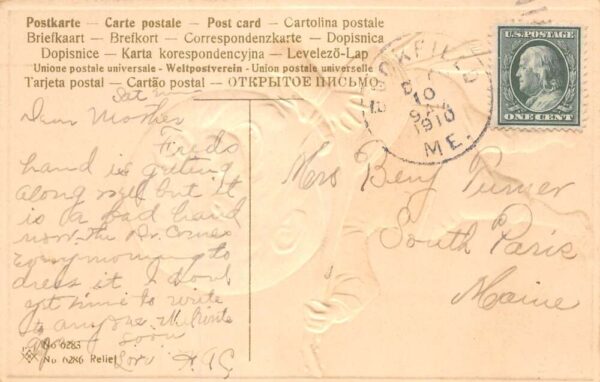 Postkarte — Carte postale — Post card — Cartolina postale
Briefkaart — Brefkort — Correspondenzkarte — Dopisnica
Dopisnice — Karta korespondencyjna — Levelező-Lap
Unione postale universale - Weltpostverein - Union postale universelle
Tarjeta postal — Cartão postal — ОТКРЫТОЕ ПИСЬМО
U.S. POSTAGE
ONE CENT
10
1910
ME.
Sat
Dear Mother
Freds
hand is getting
along well but it
is a bad hand
now. the Dr. comes
every morning to
dress it I dont
get time to write
to anyone. will write
soon
Mrs Benj Turner
South Paris
Maine
No 6283
No 6286 Relief